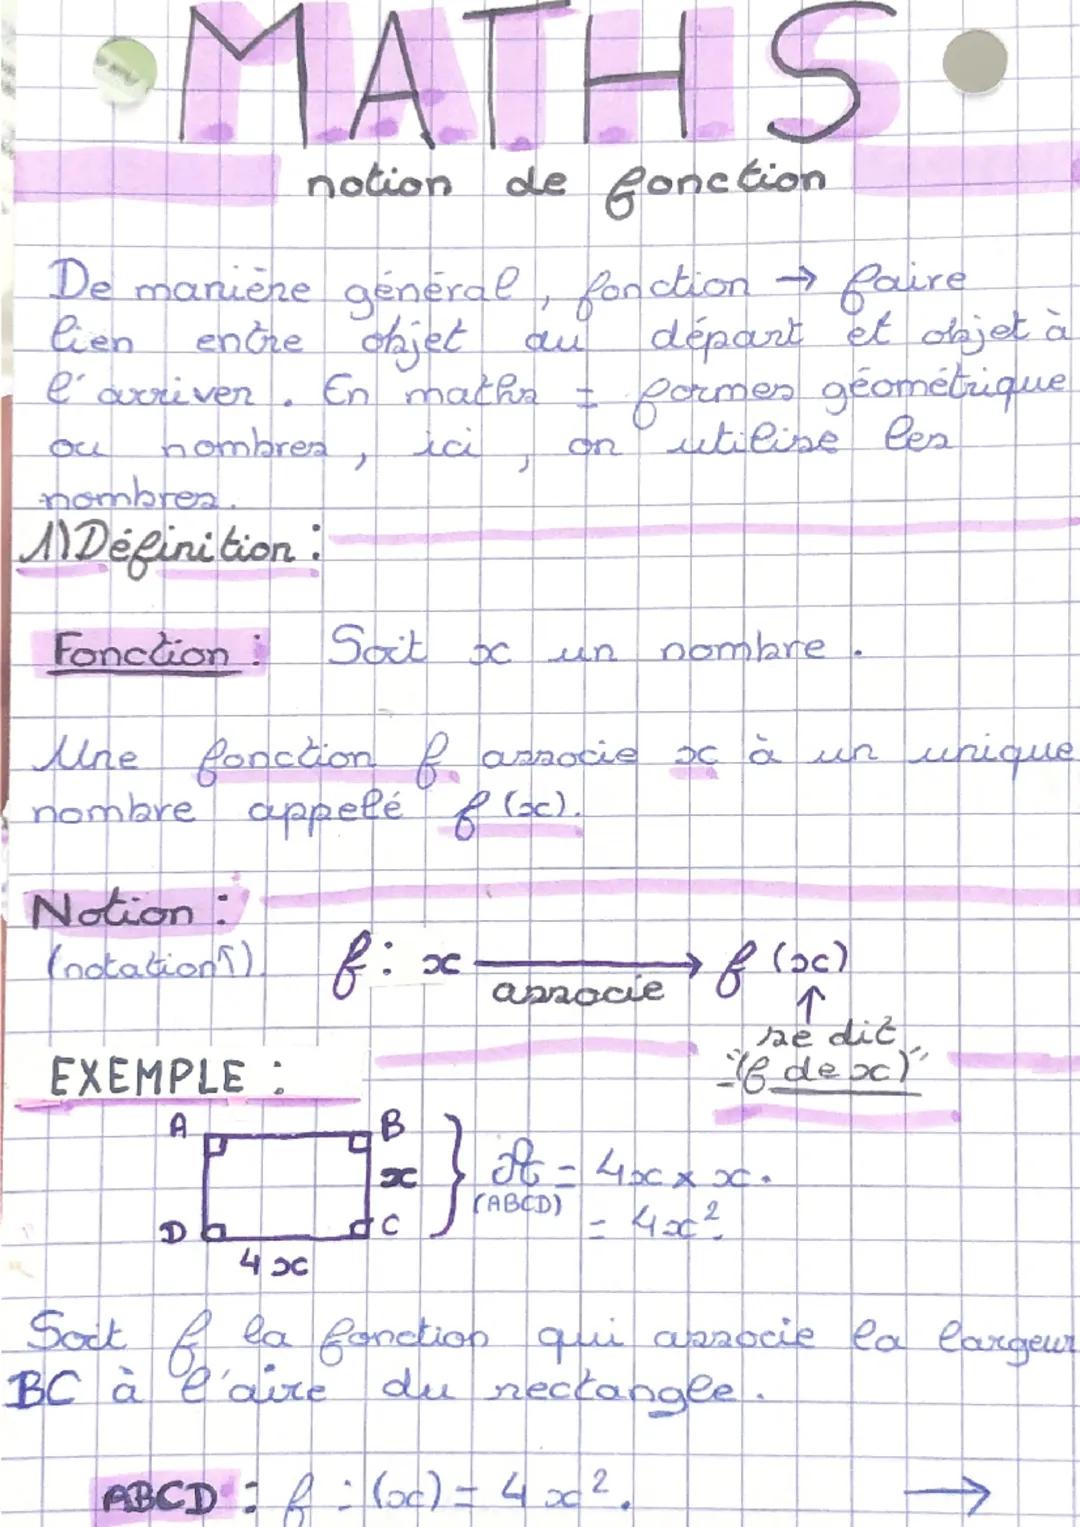 MATHS
notion de fonction
De manière général, fonction → faire
lien entre objet au départ et objet à
l'arriver. En maths = formes géométrique
ou nombres, ici, on utilise les
nombres.
1) Définition :
Fonction : Soit x un nombre.
Une fonction f associe x à un unique
nombre appelé f(x).
Notion :
(notation↑) f : x ⟶ f(x)
associe
↑
se dit
"(f de x)"
EXEMPLE :
A B
x
D C
4x
A = 4x × x.
(ABCD)
= 4x².
Soit f la fonction qui associe la largeur
BC à l'aire du rectangle.
ABCD : f : (x) = 4x². →